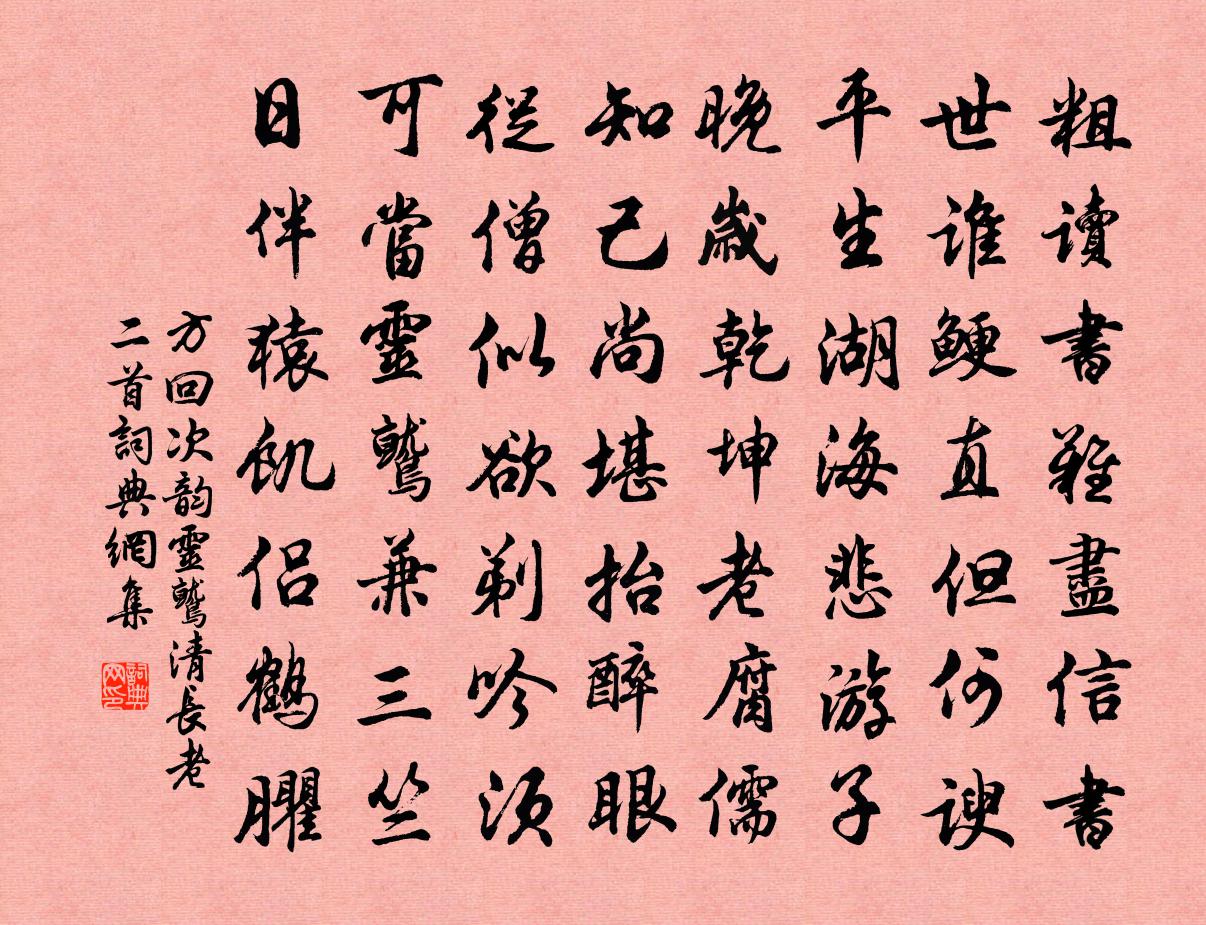 粗讀書難盡信書
世誰鯁直但何諛
平生湖海悲游子
晚歲乾坤老腐儒
知己尚堪抬醉眼
從僧似欲剃吟須
可當靈鷲兼三竺
日伴猿飢侣鶴臞
方回次韵靈鷲清長老
二首詞典網集
詞典
网印